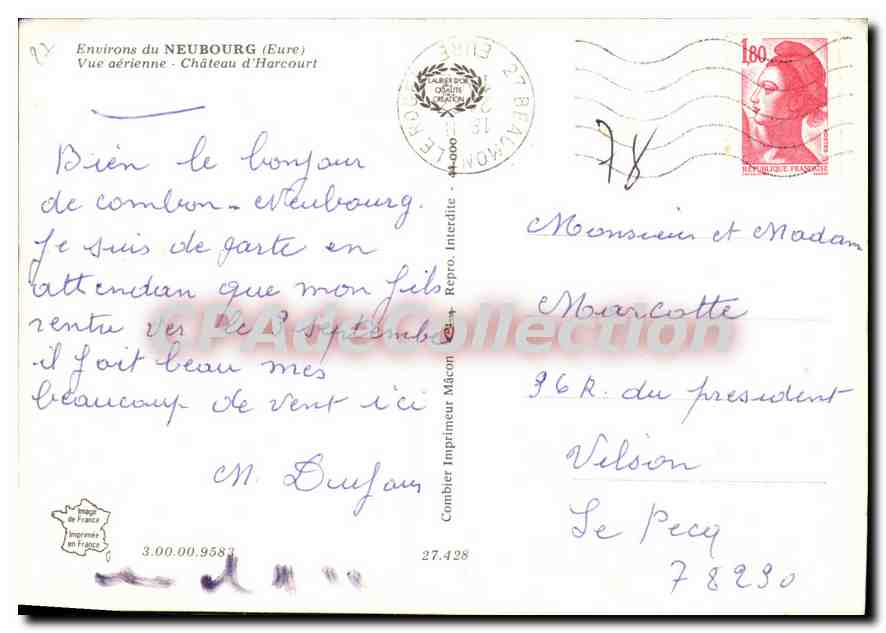 Environs du NEUBOURG (Eure)
Vue aérienne - Château d'Harcourt
Bien le bonjour
de combon - Neubourg.
Je suis de garte en
attendan que mon fils
rentre ver le 3 septembre
il fait beau mes
beaucoup de vent ici
M.
Image
de France
Imprimée
en France
3.00.00.9583
27.428
Combier Imprimeur Mâcon - Repro. Interdite - 44-000
LAURIER D'OR
QUALITÉ
CRÉATION
27 BEAUMONT LE ROGER
EURE
1,80
POSTES
RÉPUBLIQUE FRANÇAISE
78
Monsieur et Madam
Marcotte
36 R. du president
Vilson
Le Pecq
78230
CPAdeCollection